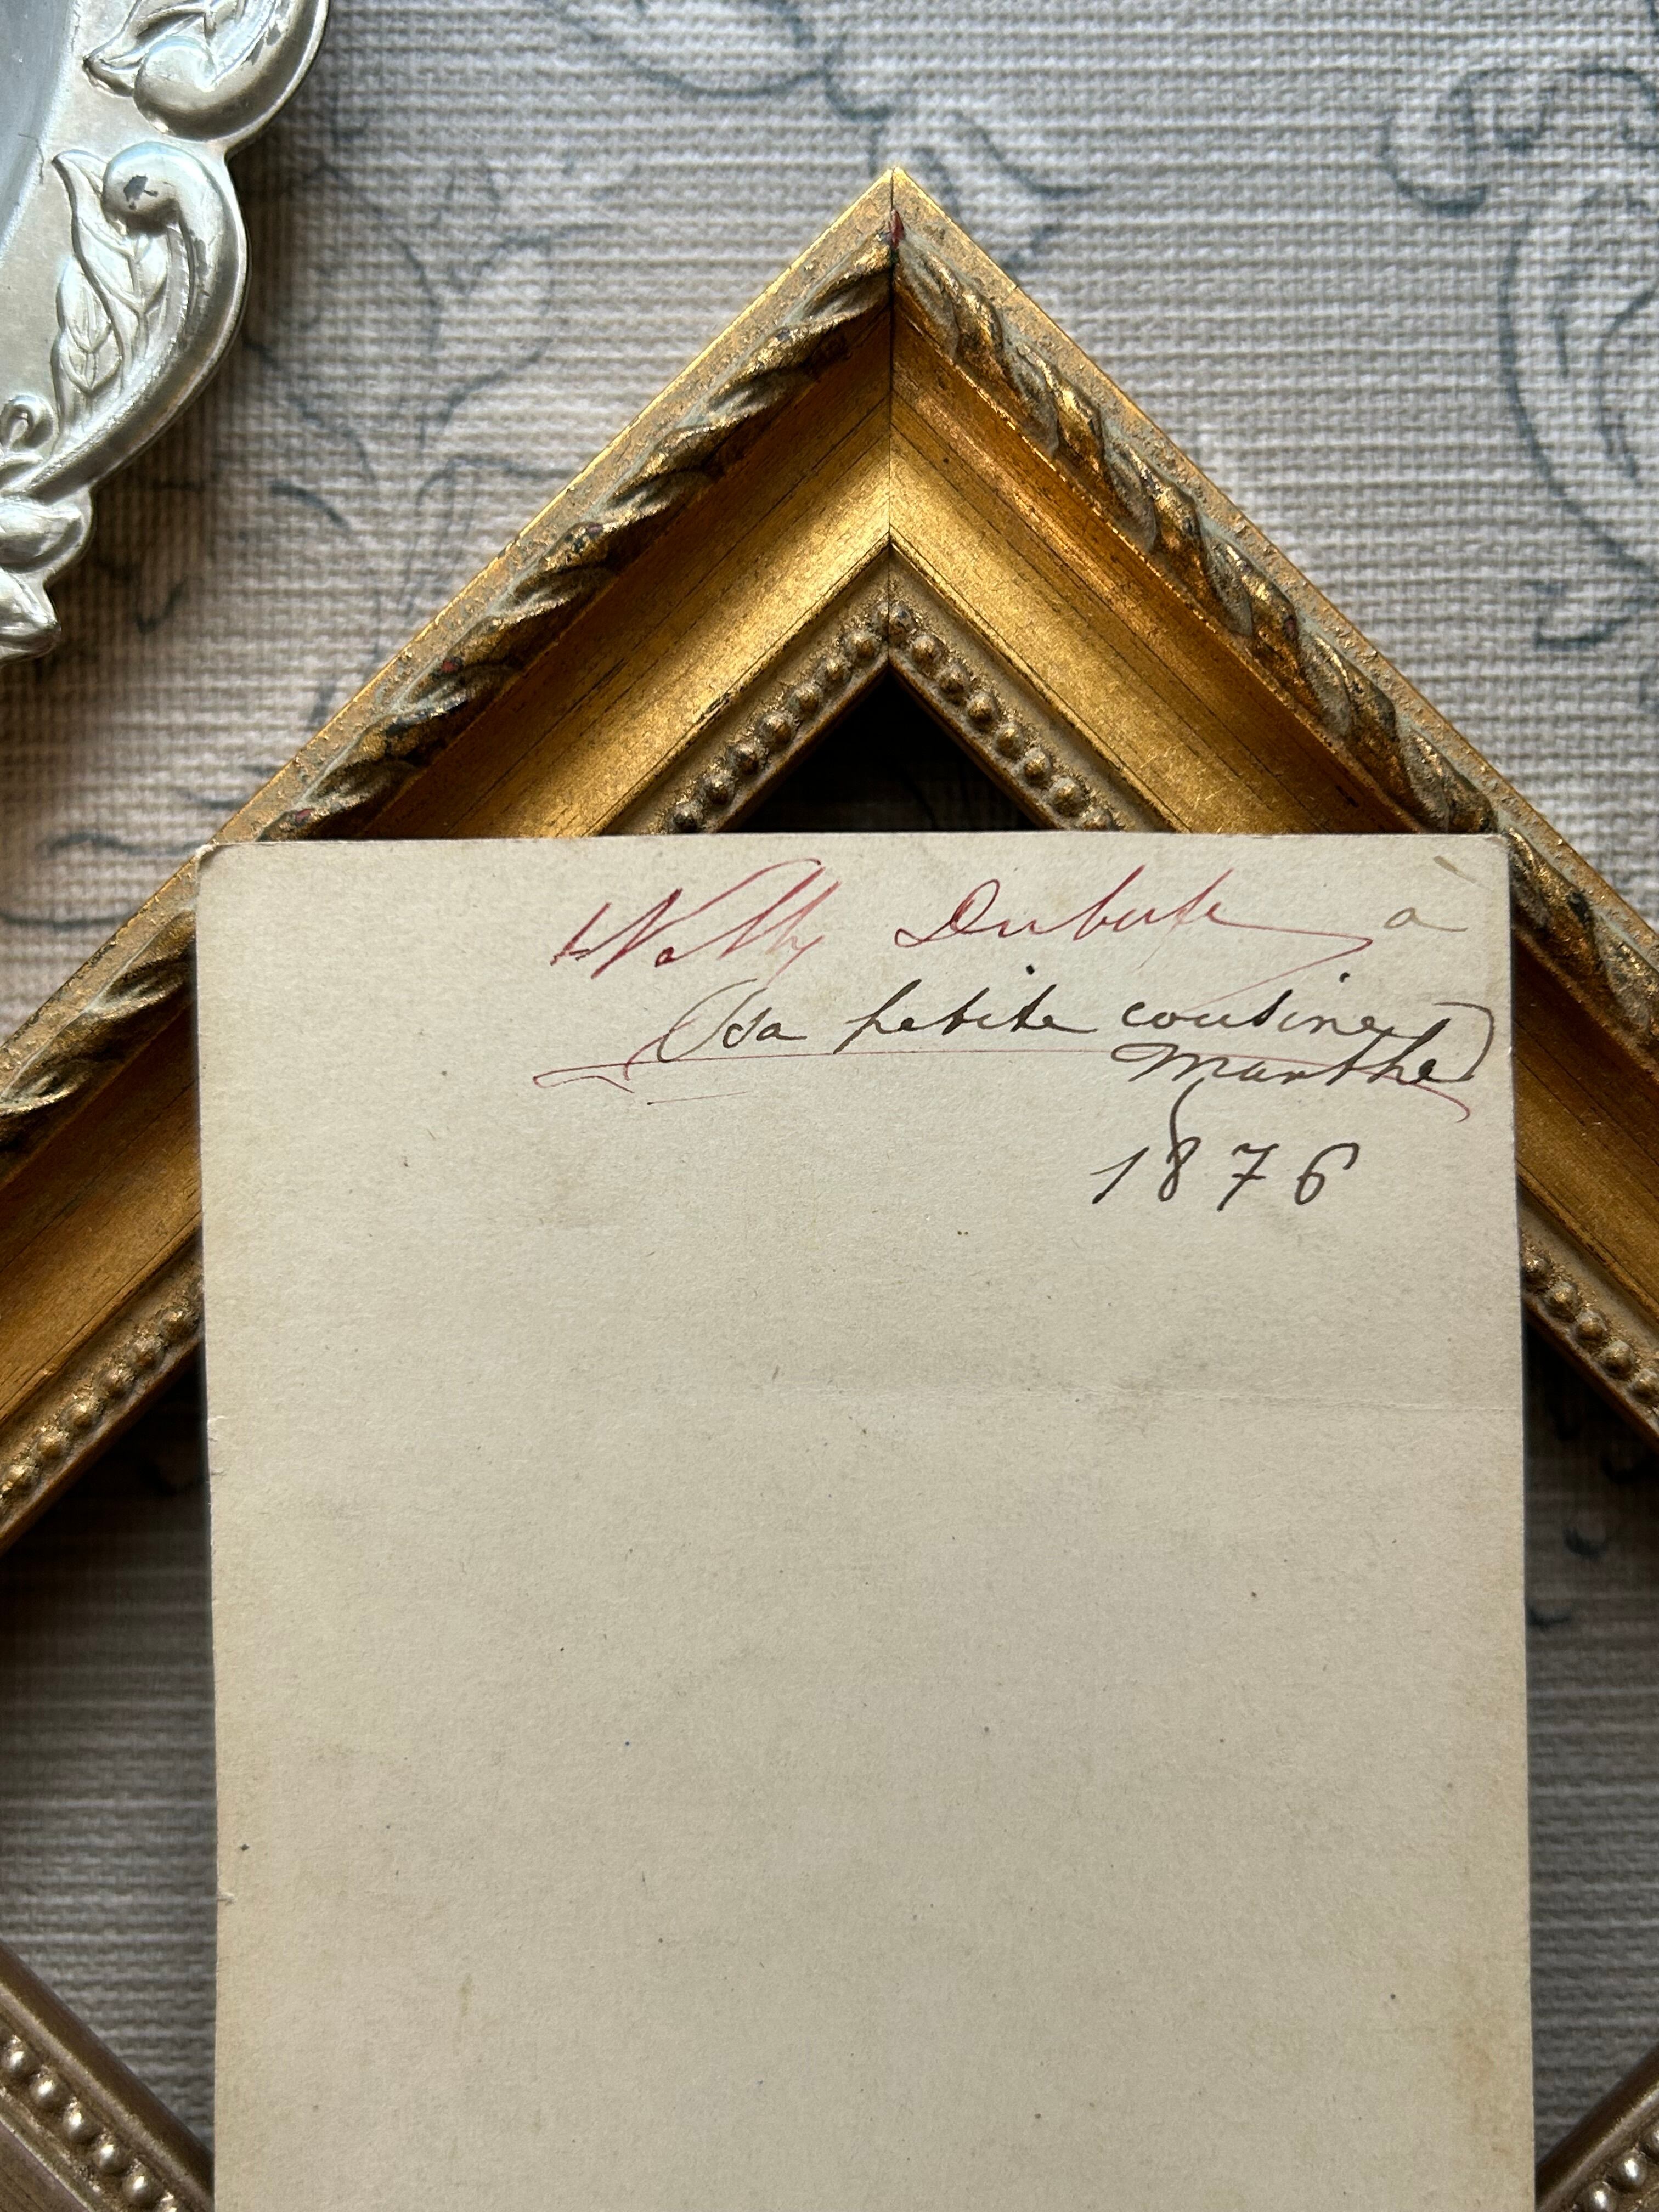 Nelly Dubufe à
sa petite cousine
Marthe
1876